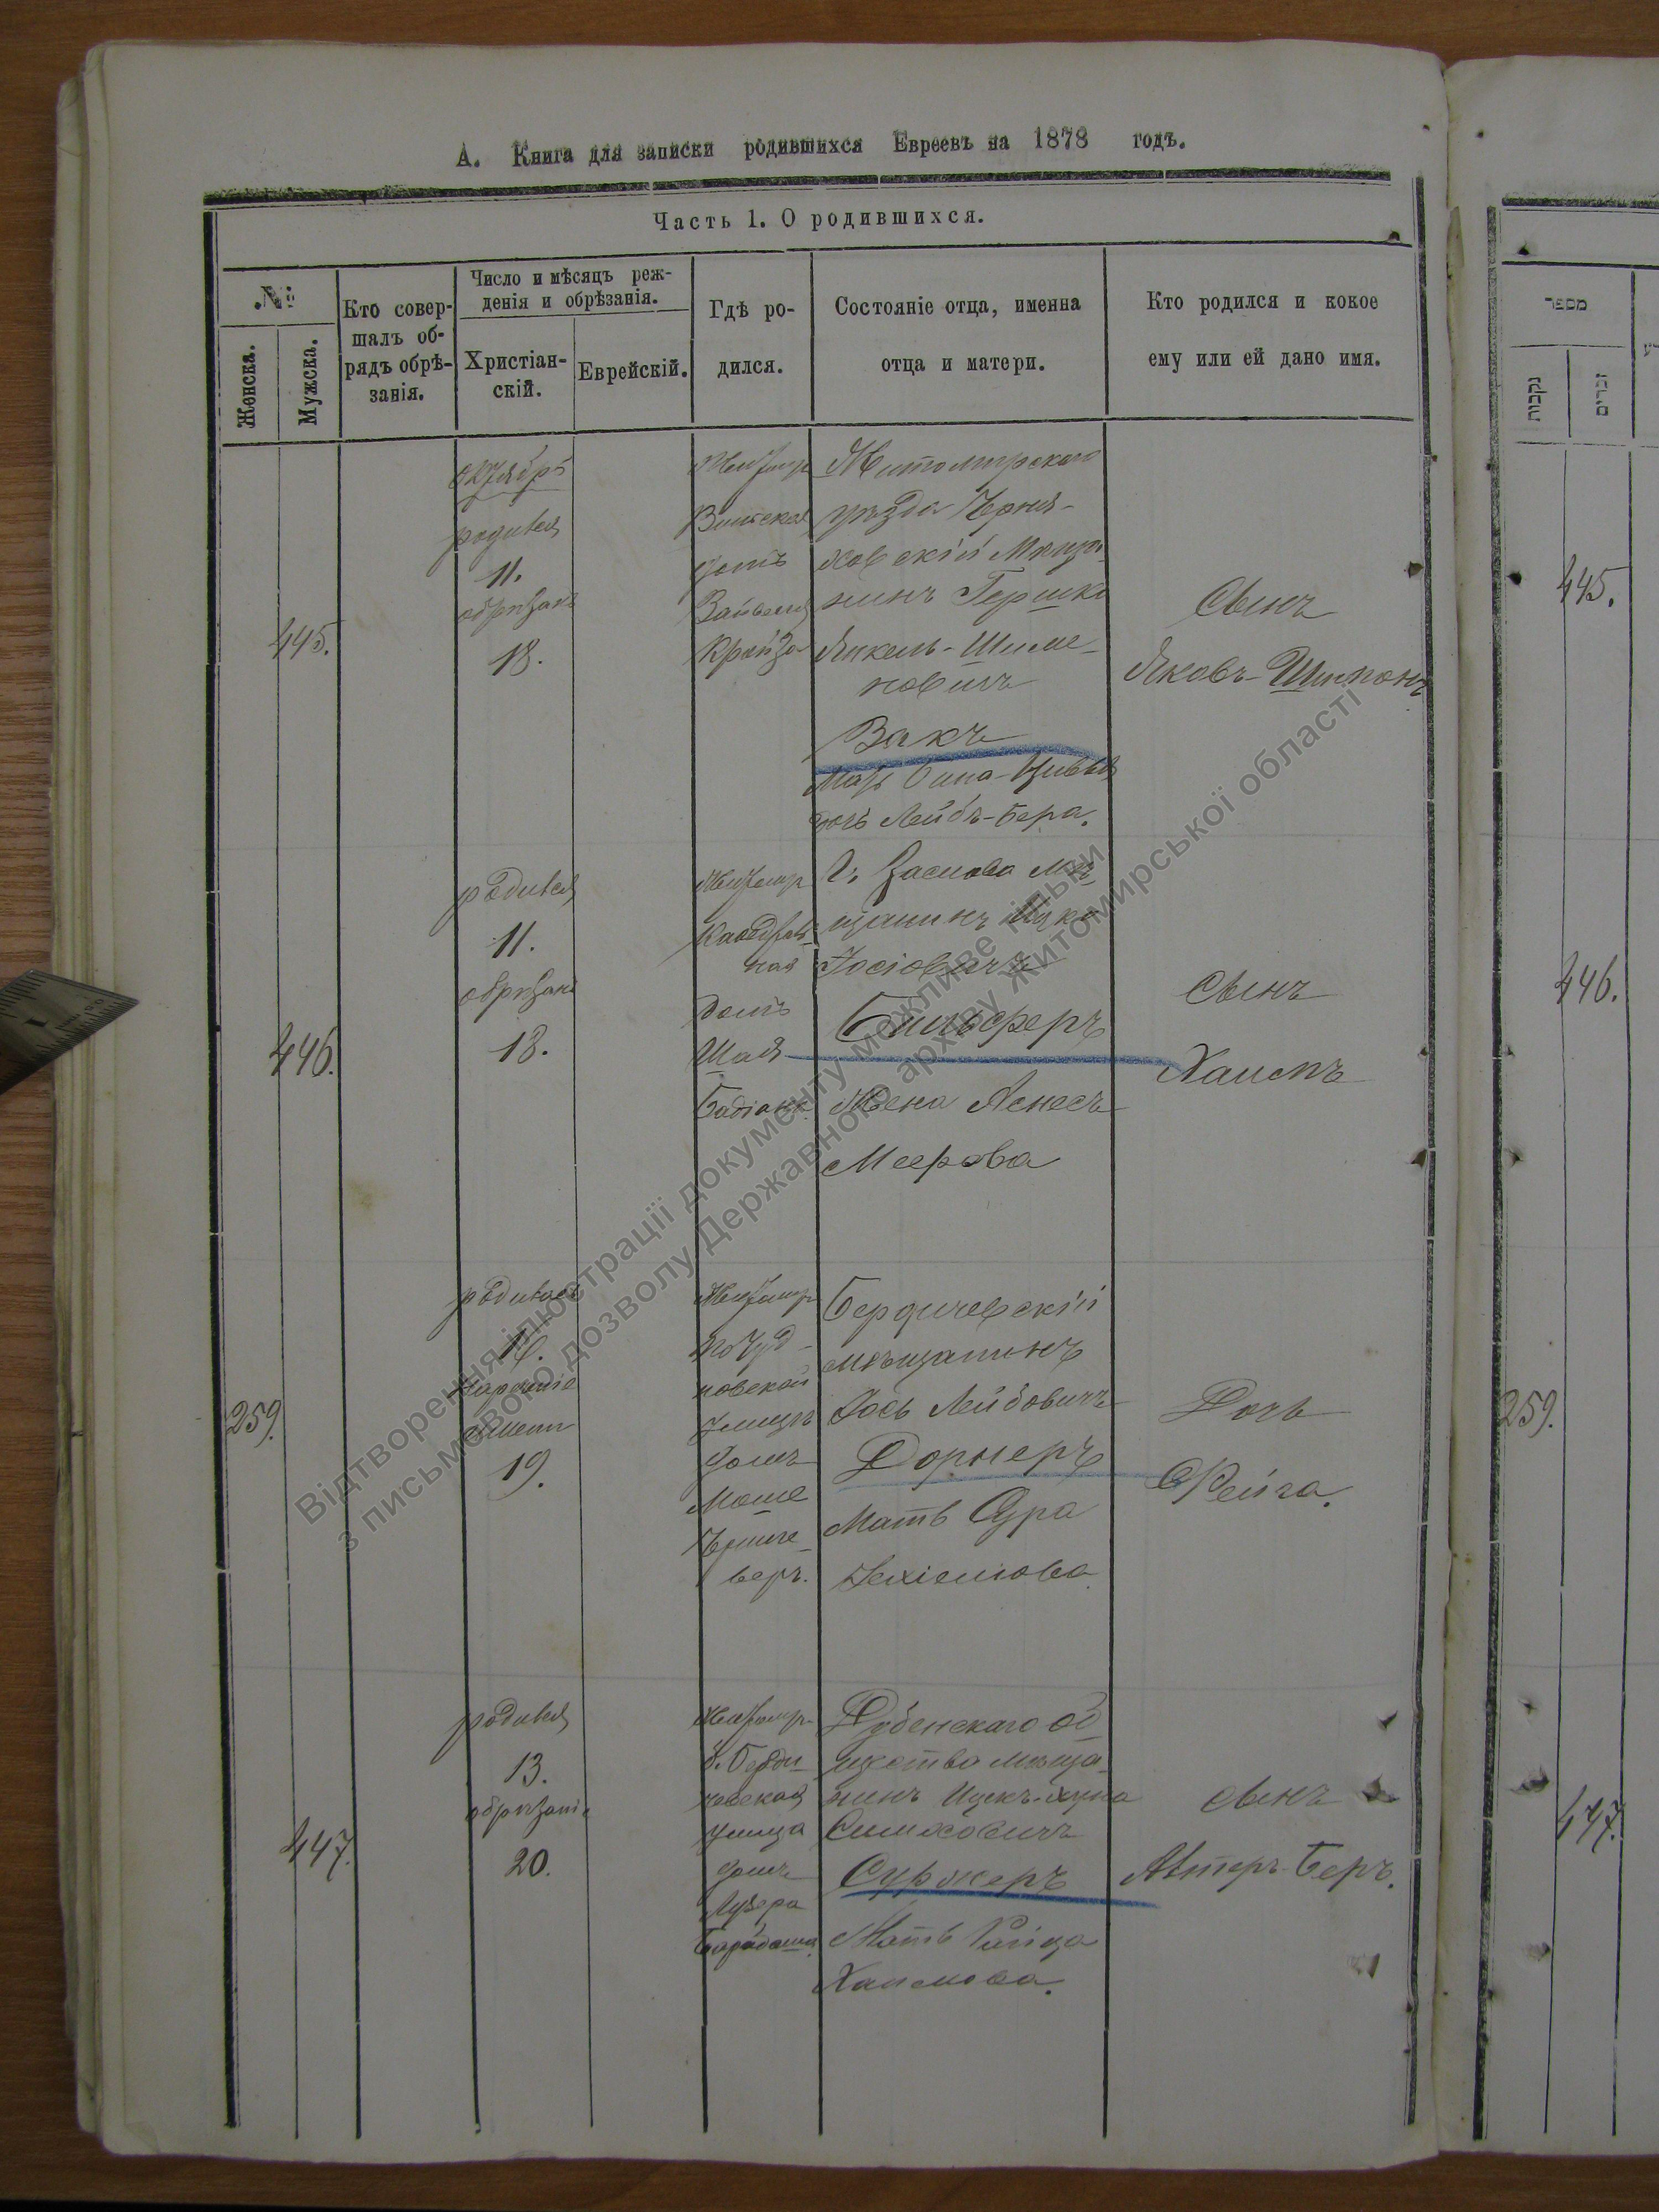 А. Книга для записки родившихся Евреевъ на 1878 годъ.
Часть 1. О родившихся.
№
Женска.
Мужска.
Кто совер-
шалъ об-
рядъ обрѣ-
занія.
Число и мѣсяцъ реж-
денія и обрѣзанія.
Христіан-
скій.
Еврейскій.
Гдѣ ро-
дился.
Состояніе отца, именна
отца и матери.
Кто родился и кокое
ему или ей дано имя.
445.
октябрь
родился
11.
обрѣзанъ
18.
домъ
Житомирскаго
уѣзда Черня-
ховскій Мѣща
нинъ Гершко
Янкель-Шиме-
новичъ
Вакъ
дочь Лейбъ-Бера.
Сынъ
Яковъ-Шимонъ
446.
родился
11.
обрѣзанъ
18.
Житомир
Каѳедраль
ная
домъ
Шая
Г. Заслава Мѣ-
щанинъ Ицко
Іосіовичъ
Жена
Меерова
Сынъ
Хаимъ
259.
родилась
16.
нареченіе
имени
19.
Житомир
по Чуд-
новской
улицѣ
домъ
Моше
Бердичевскій
мѣщанинъ
Іось Лейбовичъ
Дорнеръ
Мать Сура
Дочь
Рейза.
447.
родился
13.
обрѣзаніе
20.
Житомир-
б. Берди-
чевская
улица
домъ
Лузера
Дубенскаго об
щества мѣща-
нинъ Ицекъ-Хуна
Симховичъ
Мать Раиза
Хаимова.
сынъ
Автеръ-Беръ.
מספר
נקבות
זכרים
445.
446.
259.
447.
Відтворення ілюстрації документу можливе тільки
з письмового дозволу Державного архіву Житомирської області